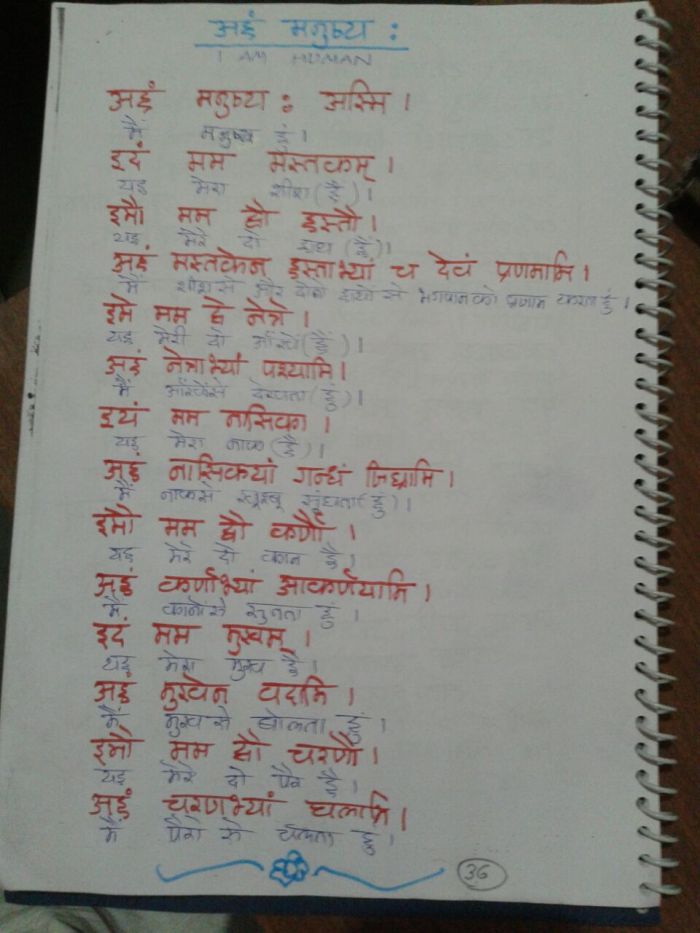 अहं मनुष्य :
I AM HUMAN
अहं मनुष्य : अस्मि ।
मैं मनुष्य हुं ।
इदं मम मस्तकम् ।
यह मेरा शीश (है) ।
इमौ मम द्वौ हस्तौ ।
यह मेरे दो हाथ (है) ।
अहं मस्तकेन हस्ताभ्यां च देवं प्रणमामि ।
मैं शीश से और दोनो हाथों से भगवान को प्रणाम करता हुं ।
इमे मम द्वे नेत्रे ।
यह मेरी दो आँखें (हैं) ।
अहं नेत्राभ्यां पश्यामि ।
मैं आँखोंसे देखता (हुं) ।
इयं मम नासिका ।
यह मेरा नाक (है) ।
अहं नासिकयां गन्धं जिघ्रामि ।
मैं नाकसे खूश्बू सूंघता (हुं) ।
इमौ मम द्वौ कर्णौ ।
यह मेरे दो कान है ।
अहं कर्णाभ्यां आकर्णयामि ।
मैं कानोंसे सुनता हुं ।
इदं मम मुखम् ।
यह मेरा मुख है ।
अहं मुखेन वदामि ।
मैं मुख से बोलता हुं ।
इमौ मम द्वौ चरणौ ।
यह मेरे दो पैर है ।
अहं चरणभ्यां चलामि ।
मैं पैरो से चलता हुं ।
36